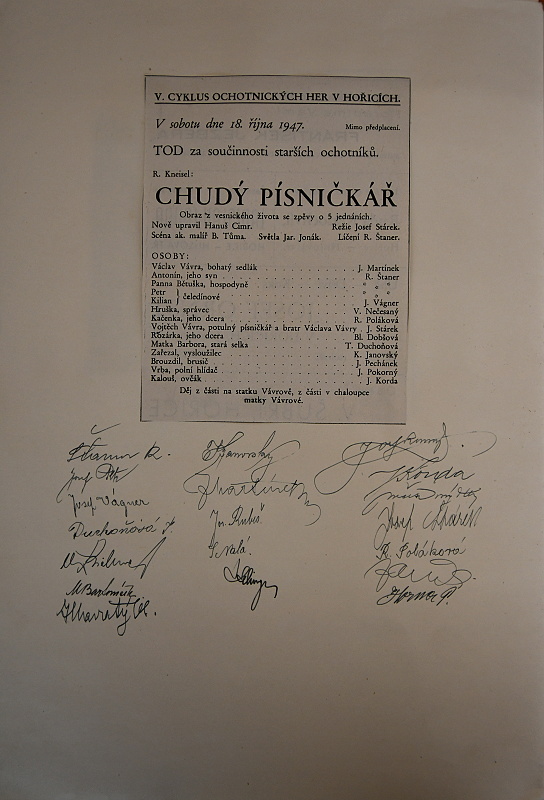 V. CYKLUS OCHOTNICKÝCH HER V HOŘICÍCH.
V sobotu dne 18. října 1947. Mimo předplacení.
TOD za součinnosti starších ochotníků.
R. Kneisel:
CHUDÝ PÍSNIČKÁŘ
Obraz z vesnického života se zpěvy o 5 jednáních.
Nově upravil Hanuš Cimr. Režie Josef Stárek.
Scéna ak. malíř B. Tůma. Světla Jar. Jonák. Líčení R. Štaner.
OSOBY:
Václav Vávra, bohatý sedlák . . . . . . . . . . . . . J. Martínek
Antonín, jeho syn . . . . . . . . . . . . . . . . . R. Štaner
Panna Bětuška, hospodyně . . . . . . . . . . . . . * * *
Petr } čeledínové . . . . . . . . . . . . . . . . . * * *
Kilian } . . . . . . . . . . . . . . . . . J. Vágner
Hruška, správec . . . . . . . . . . . . . . . . . V. Nečesaný
Kačenka, jeho dcera . . . . . . . . . . . . . . . R. Poláková
Vojtěch Vávra, potulný písničkář a bratr Václava Vávry . J. Stárek
Rozárka, jeho dcera . . . . . . . . . . . . . . . Bl. Dobšová
Matka Barbora, stará selka . . . . . . . . . . . . T. Duchoňová
Zařezal, vysloužilec . . . . . . . . . . . . . . . K. Janovský
Brouzdil, brusič . . . . . . . . . . . . . . . . . J. Pechánek
Vrba, polní hlídač . . . . . . . . . . . . . . . . J. Pokorný
Kalouš, ovčák . . . . . . . . . . . . . . . . . . J. Korda
Děj z části na statku Vávrově, z části v chaloupce
matky Vávrové.
Štaner R.
Josef
Josef Vágner
Duchoňová T.
K Janovský
J Martínek
J Korda
Josef Stárek
R. Poláková